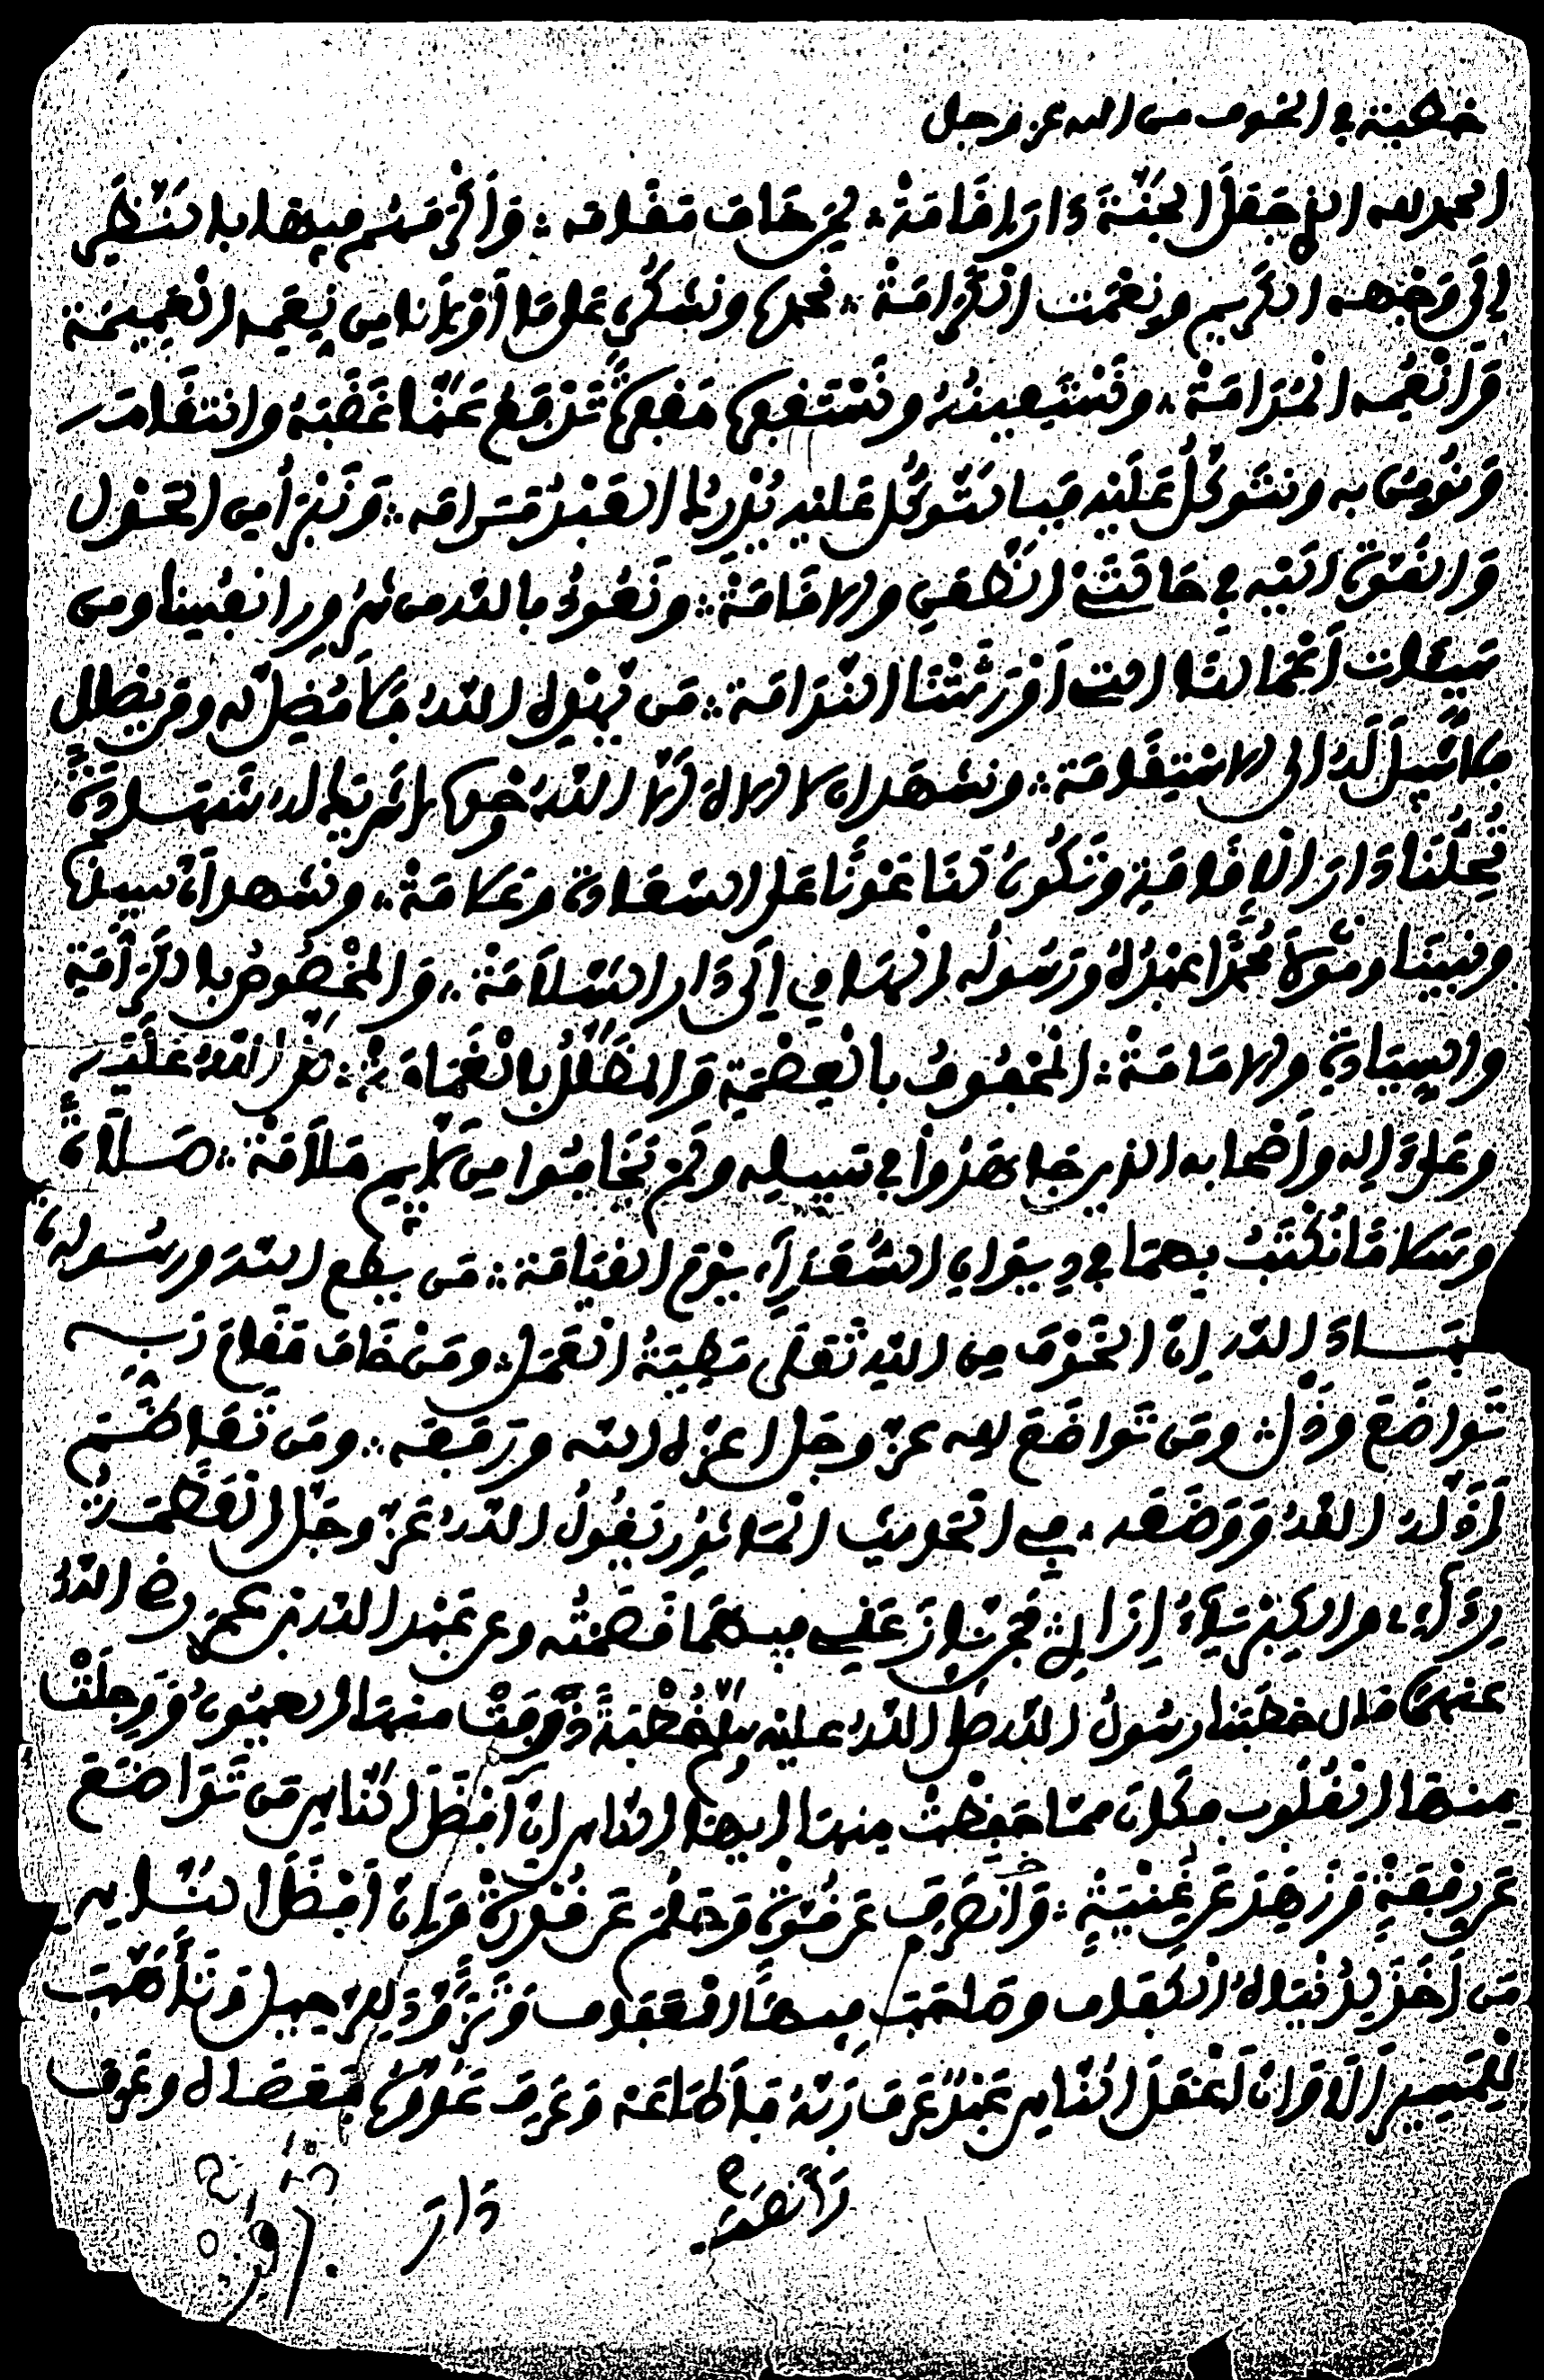 خطبة في الخوف من الله عز وجل
الحمد لله الذي جعل الجنة دار إقامة لمن خاف مقامه وأكرمهم فيها بالنظر
إلى وجهه الكريم ونعمت الكرامة نحمده ونشكره على ما أولانا من نعمه العميمة
والنعمه المدامة ونستعينه ونستغفره مغفرة تدفع عنا غضبه وانتقامه
ونومن به ونتوكل عليه فبالتوكل عليه يدرك العبد مرامه ونبرأ من الحول
والقوة إليه في حالتي الظعن والإقامة ونعوذ بالله من شرور أنفسنا ومن
سيئات أعمالنا التي أورثتنا الندامة من يهد الله فلا مضل له ومن يضلل
فلا سبيل له إلى الاستقامة ونشهد أن لا إله إلا الله وحده لا شريك له شهادة
تحلنا دار الإقامة وتكون لنا عونا على السعادة وعلامة ونشهد أن سيدنا
ونبينا ومولانا محمدا عبده ورسوله الهادي إلى دار السلامة والمخصوص بالكرامة
والسيادة والإمامة المحفوف بالعصمة والمظلل بالغمامة صلى الله عليه
وعلى ءاله وأصحابه الذين جاهدوا في سبيله ولم يخافوا من لايم ملامة صلاة
وسلاما نكتب بهما في ديوان السعداء يوم القيامة من يطع الله ورسوله
عباد الله إن الخوف من الله تعلى مطية العمل ومن خاف مقام ربه
تواضع وذل ومن تواضع لله عز وجل أعزه الله ورفعه ومن تعاظم
أذله الله ووضعه في الحديث المأثور يقول الله عز وجل العظمة
ردائي والكبرياء إزاري فمن نازعني فيهما قصمته وعن عبد الله بن عمر رضي الله
عنهما قال خطبنا رسول الله صلى الله عليه وسلم خطبة ذرفت منها العيون ووجلت
منها القلوب فكان مما حفظت منها أيها الناس إن أفضل الناس من تواضع
عن رفعة وزهد عن غنية وأنصف عن قوة وحلم عن قدرة وإن أفضل الناس
من أخذ من الدنيا الكفاف وصاحب فيها العفاف وتزود للرحيل وتأهب
للمسير ألا وإن أعقل الناس عبد عرف ربه فأطاعه وعرف عدوه فعصاه وعرف
دار